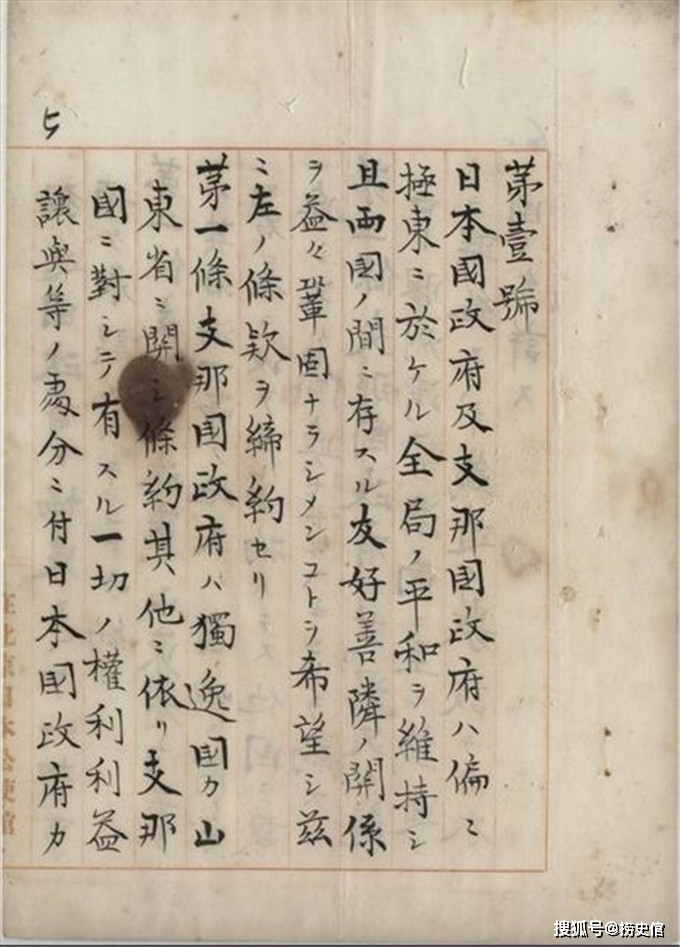 第壹號
日本國政府及支那國政府ハ偏ニ
極東ニ於ケル全局ノ平和ヲ維持シ
且両國ノ間ニ存スル友好善隣ノ関係
ヲ益々鞏固ナラシメンコトヲ希望シ茲
ニ左ノ條欵ヲ締約セリ
第一條支那国政府ハ獨逸国カ山
東省ニ関シ條約其他ニ依リ支那
國ニ對シテ有スル一切ノ權利利益
讓與等ノ處分ニ付日本國政府カ
在北京日本公使館
搜狐号@捞史馆